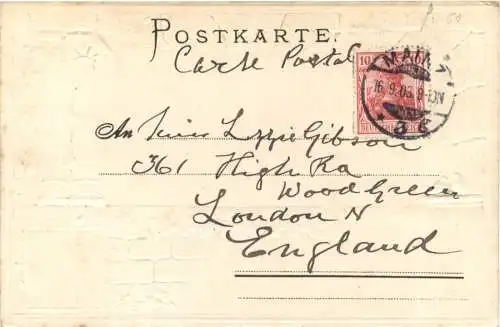 POSTKARTE.
Carte Postal
10
MAINZ
16.9.05.8-9N
An Miss Lizzie Gibson
361 High Rd
Wood Green
London N
England